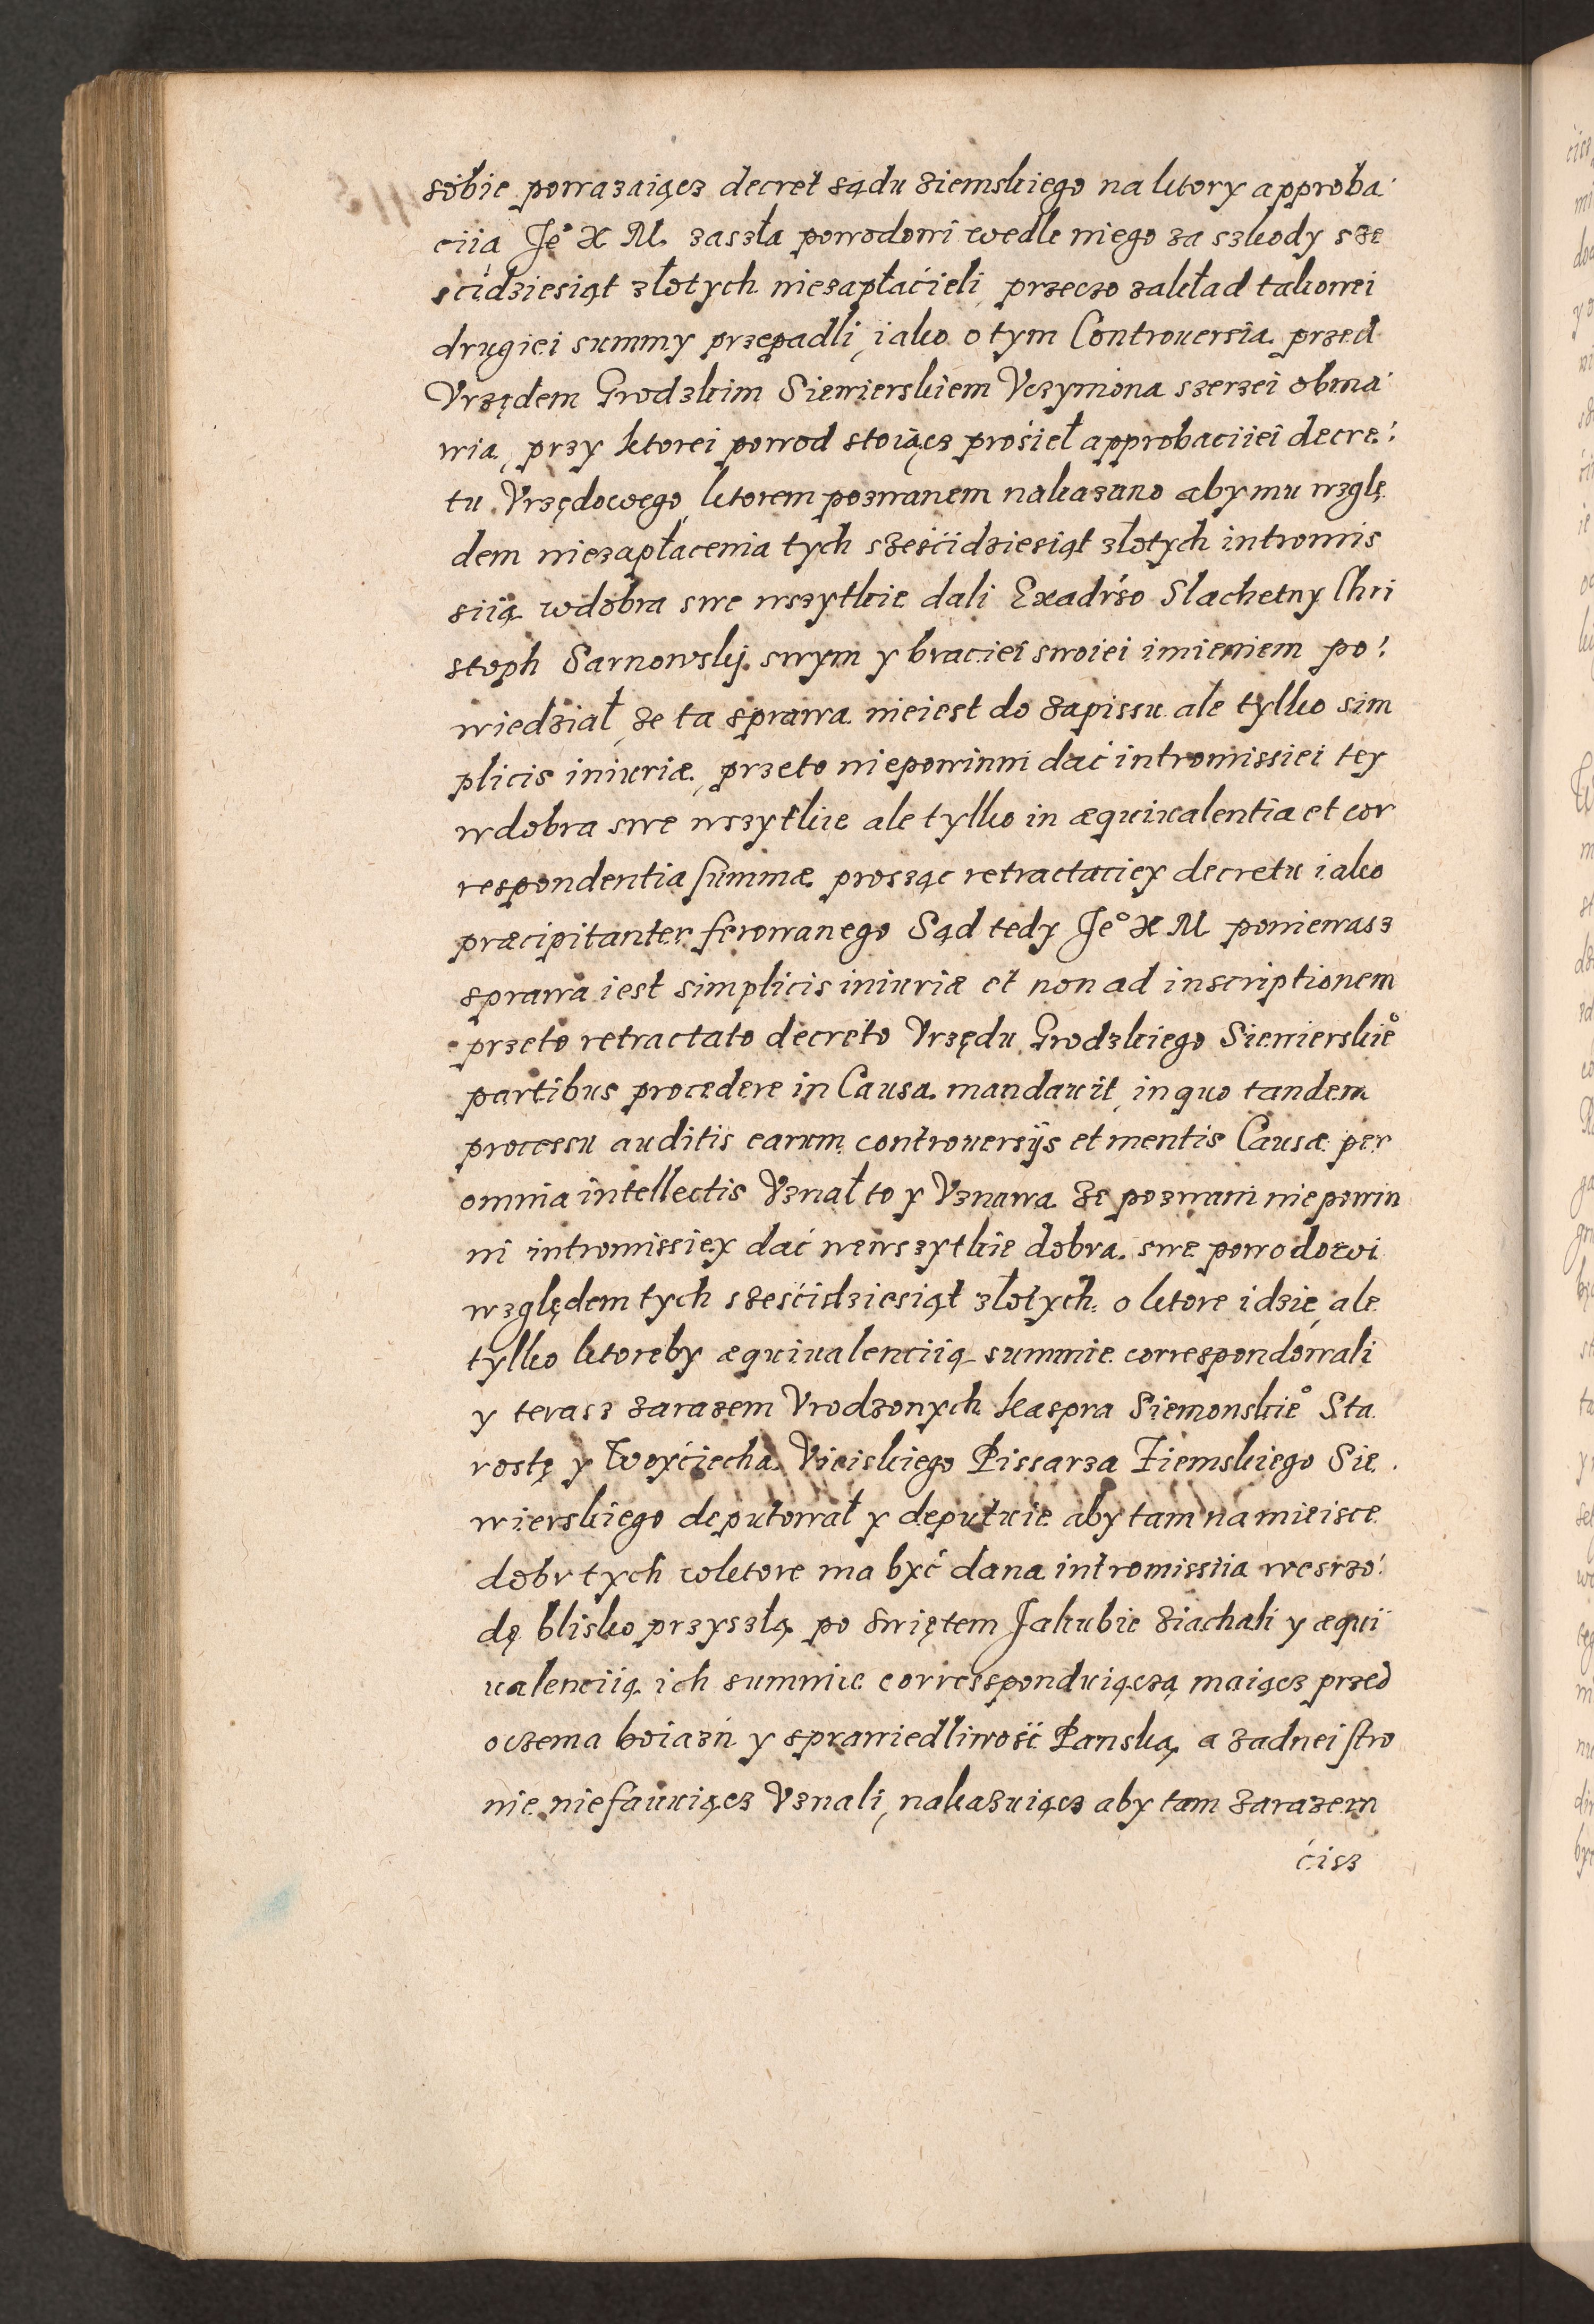 sobie powazaiącz decret sądu ziemskiego na ktory approba
ciia Je° X M. zaszła powodowi wedle niego za szkody sze
scidziesiąt złotych niezapłacieli, przeczo zakład takowei
drugiei summy przepadli, iako o tym Controuersia przed
Vrzędem Grodzkim Siewierskiem Vczyniona szerzei obma
wia, przy ktorei powod stoiącz prosieł approbaciiei decre
tu Vrzędowego, ktorem pozwanem nakazano aby mu wzglę
dem niezapłacenia tych sześcidziesiąt złotych intromis
siią w dobra swe wszytkie dali Exadrso Slachetny Chri
stoph Sarnowskj swym y braciei swoiei imieniem po
wiedział, że ta sprawa nieiest do zapissu ale tylko sim
plicis iniuriæ, przeto niepowinni dać intromissiei tey
w dobra swe wszytkie ale tylko in æquiualentia et cor
respondentia summæ prosząc retractaciey decretu iako
præcipitanter ferowanego Sąd tedy Je° X M poniewasz
sprawa iest simplicis iniuriæ et non ad inscriptionem
przeto retractato decreto Vrzędu Grodzkiego Siewierskie°
partibus procedere in Causa mandauit, in quo tandem
processu auditis earum controuersijs et mentis Causæ per
omnia intellectis Vznał to y Vznawa że pozwani nie powin
ni intromissiey dać wewszytkie dobra swe powodowi
względem tych sześcidziesiąt złotych o ktore idzie, ale
tylko ktoreby æquiualenciią summie correspondowali
y terasz zarazem Vrodzonych Kaspra Siemonskie° Sta
rostę y Woyciecha Vieiskiego Pissarza Ziemskiego Sie
wierskiego deputował y deputuie aby tam na mieisce
dobr tych w ktore ma być dana intromissiia we srzo
dę blisko przyszłą po Swiętem Jakubie ziachali y æqui
ualenciią ich summie correspponduiączą maiącz przed
oczema boiazń y sprawiedliwość Panską, a zadnei stro
nie niefauuiącz Vznali, nakazuiącz aby tam zarazem
cisz